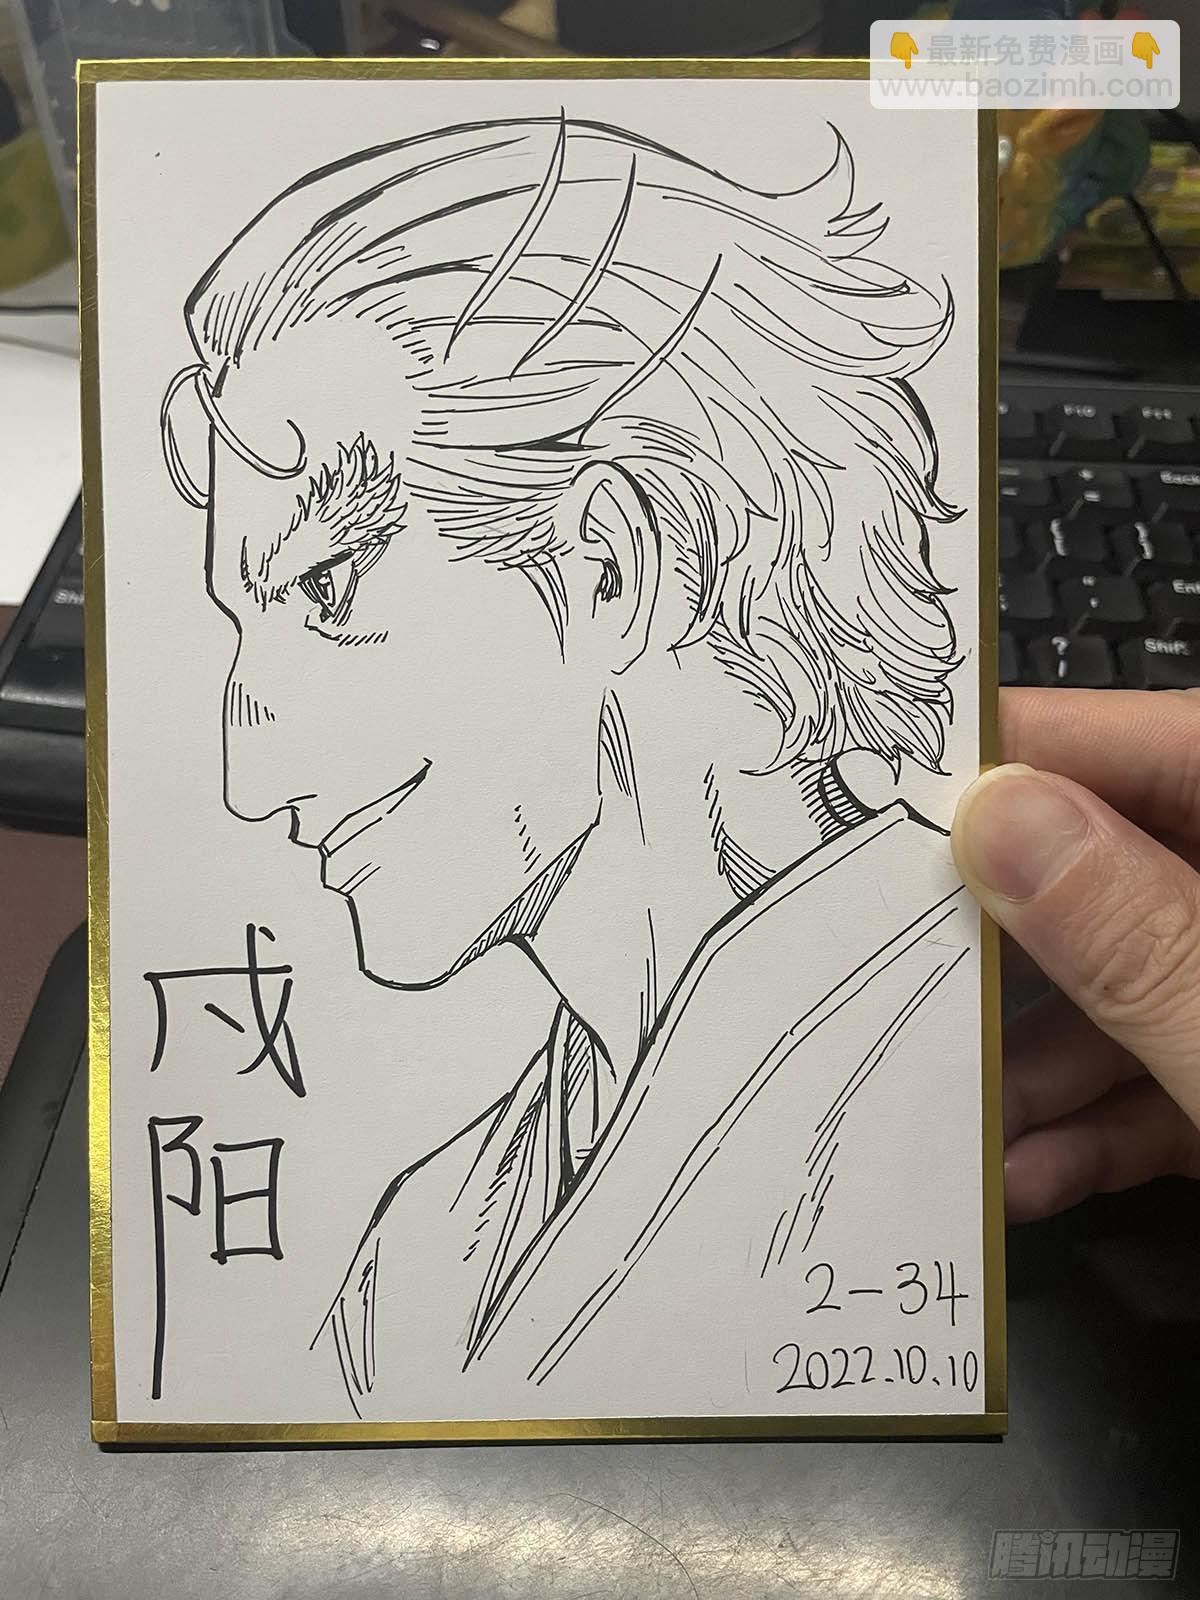 👇最新免费漫画👇
www.baozimh.com
戍阳
2-34
2022.10.10
腾讯动漫
Shif
F10
F11
Back
Shift